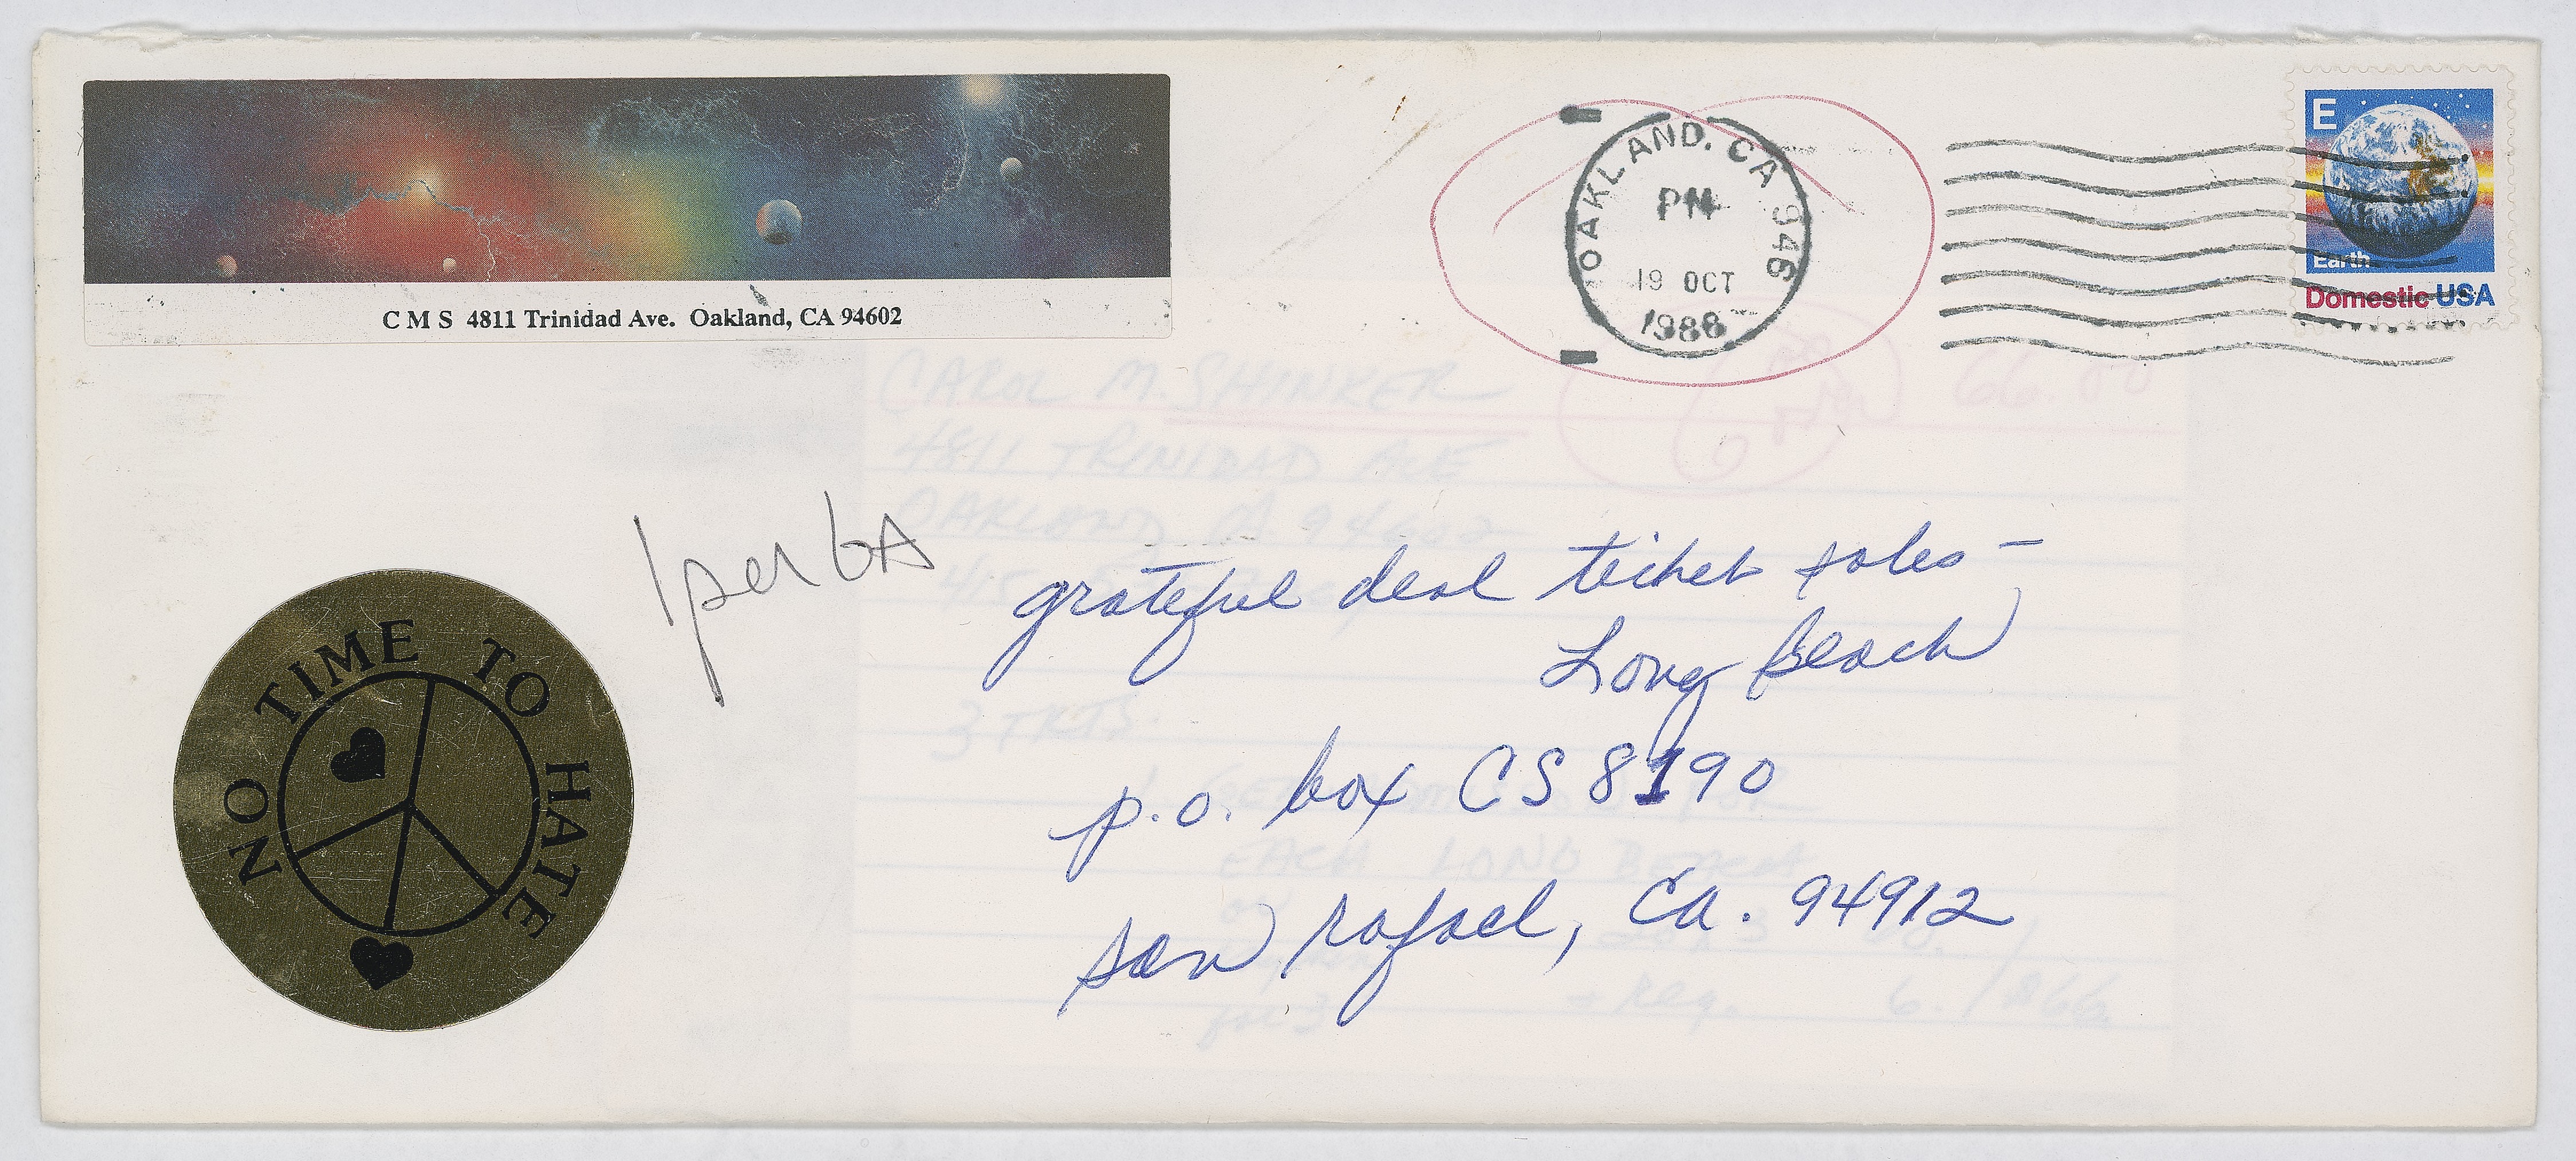 C M S 4811 Trinidad Ave. Oakland, CA 94602
OAKLAND, CA 946
PM
19 OCT
1988
E
Earth
Domestic USA
CAROL M. SHINKER
66.00
4811 TRINIDAD AVE
OAKLAND, CA 94602
415
1 per
grateful dead ticket sales -
Long Beach
3 TKTS
p.o. box CS 8190
EACH LONG BEACH
san rafael, Ca. 94912
for 3 + Reg. 6.
NO TIME TO HATE